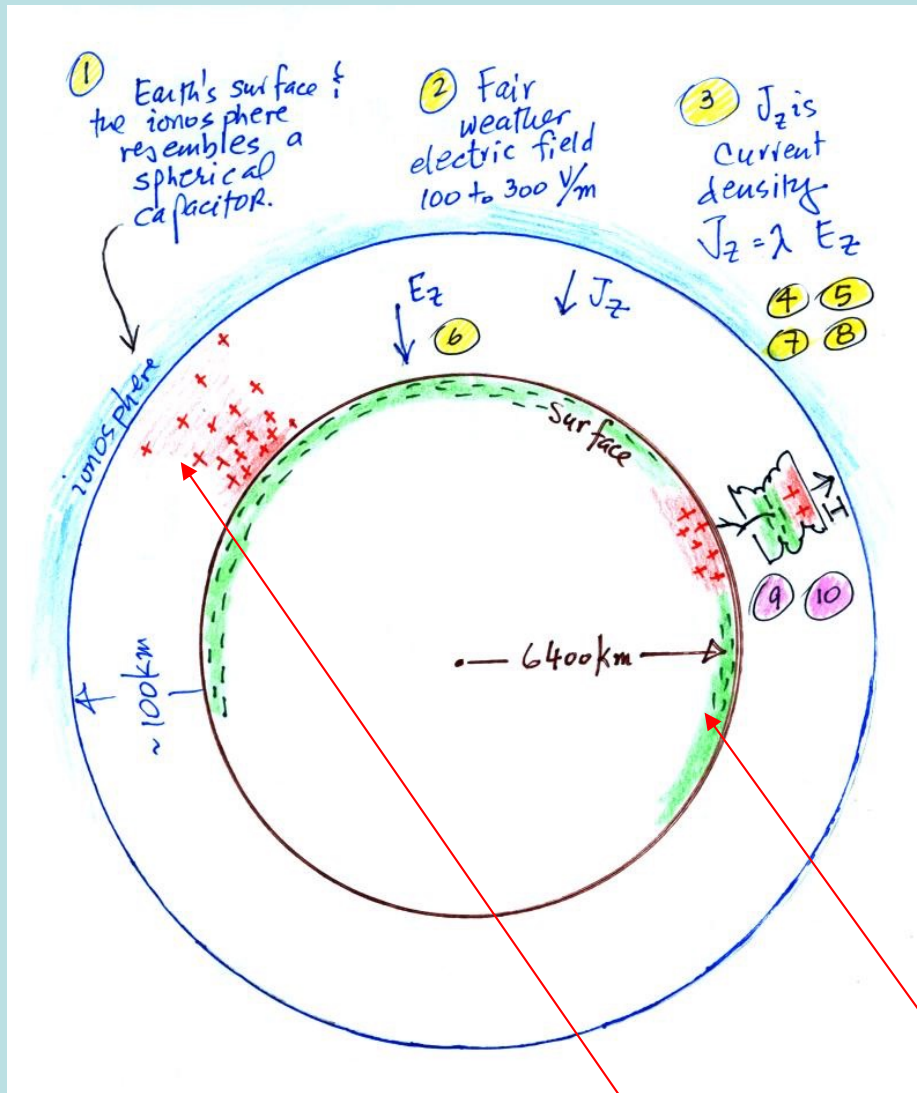 1
Earth's surface &
the ionosphere
resembles a
spherical
capacitor.
2 Fair
weather
electric field
100 to 300 V/m
3 Jz is
current
density
Jz = λ Ez
4 5
7 8
Ez
Jz
6
ionosphere
surface
I
9 10
6400km
~100km